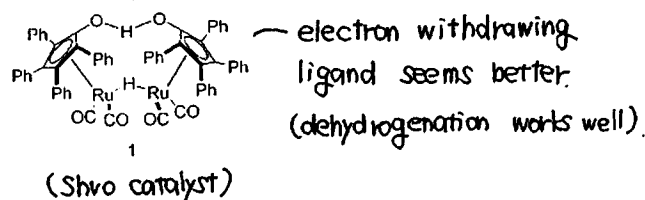 Ph O H O Ph
Ph Ph Ph Ph
Ph Ph
Ph Ru H Ru Ph
OC CO OC CO
1
(Shvo catalyst)
electron withdrawing
ligand seems better.
(dehydrogenation works well).